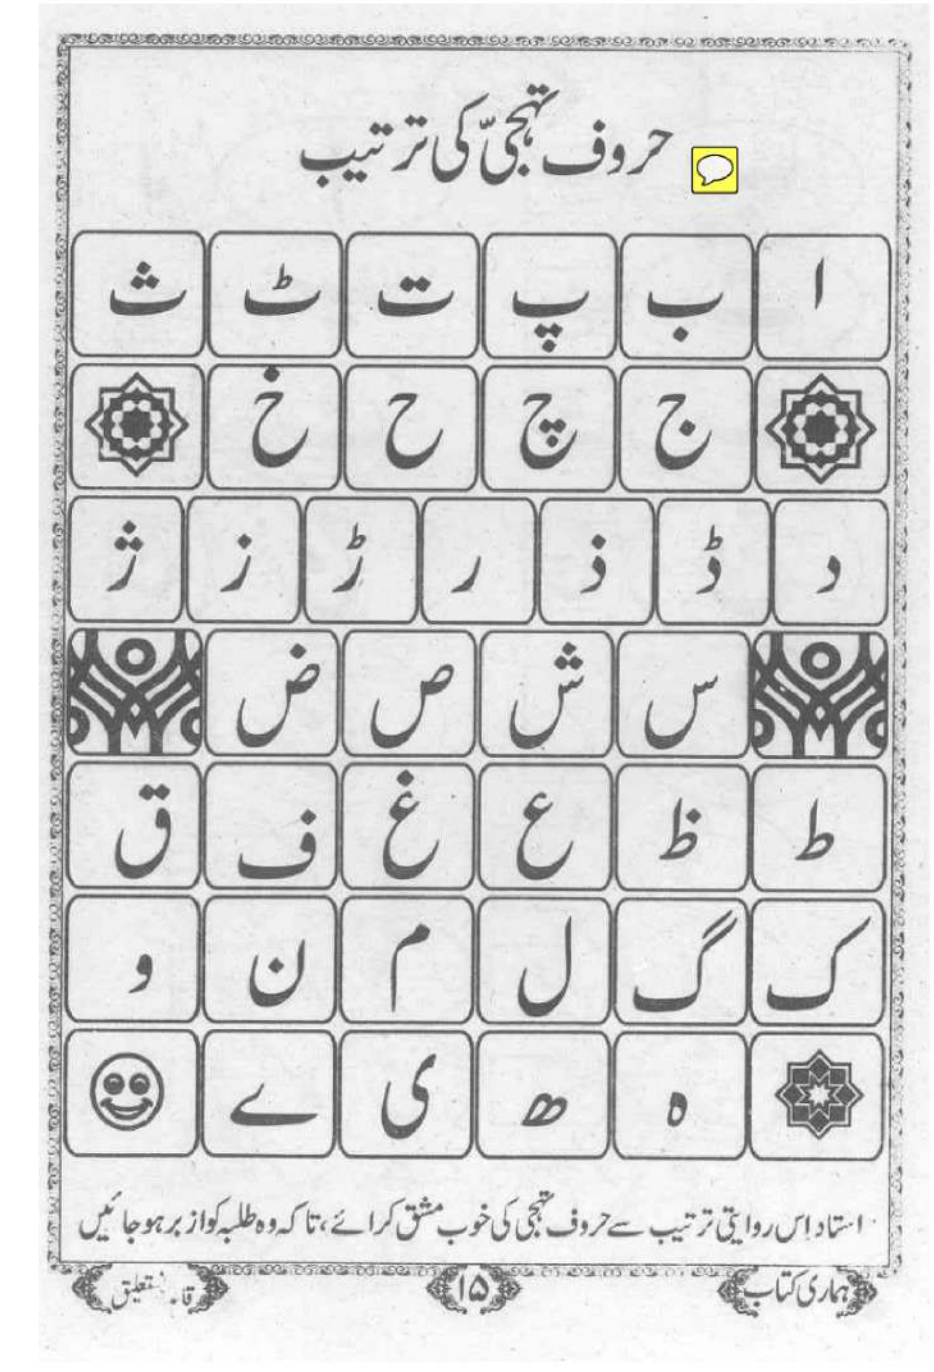 حروف تہجّی کی ترتیب
ا ب پ ت ٹ ث
ج چ ح خ
د ڈ ذ ر ڑ ز ژ
س ش ص ض
ط ظ ع غ ف ق
ک گ ل م ن و
ہ ھ ی ے
استاد اِس روایتی ترتیب سے حروف تہجی کی خوب مشق کرائے، تاکہ وہ طلبہ کو ازبر ہو جائیں
ہماری کتاب ۱۵ نستعلیق